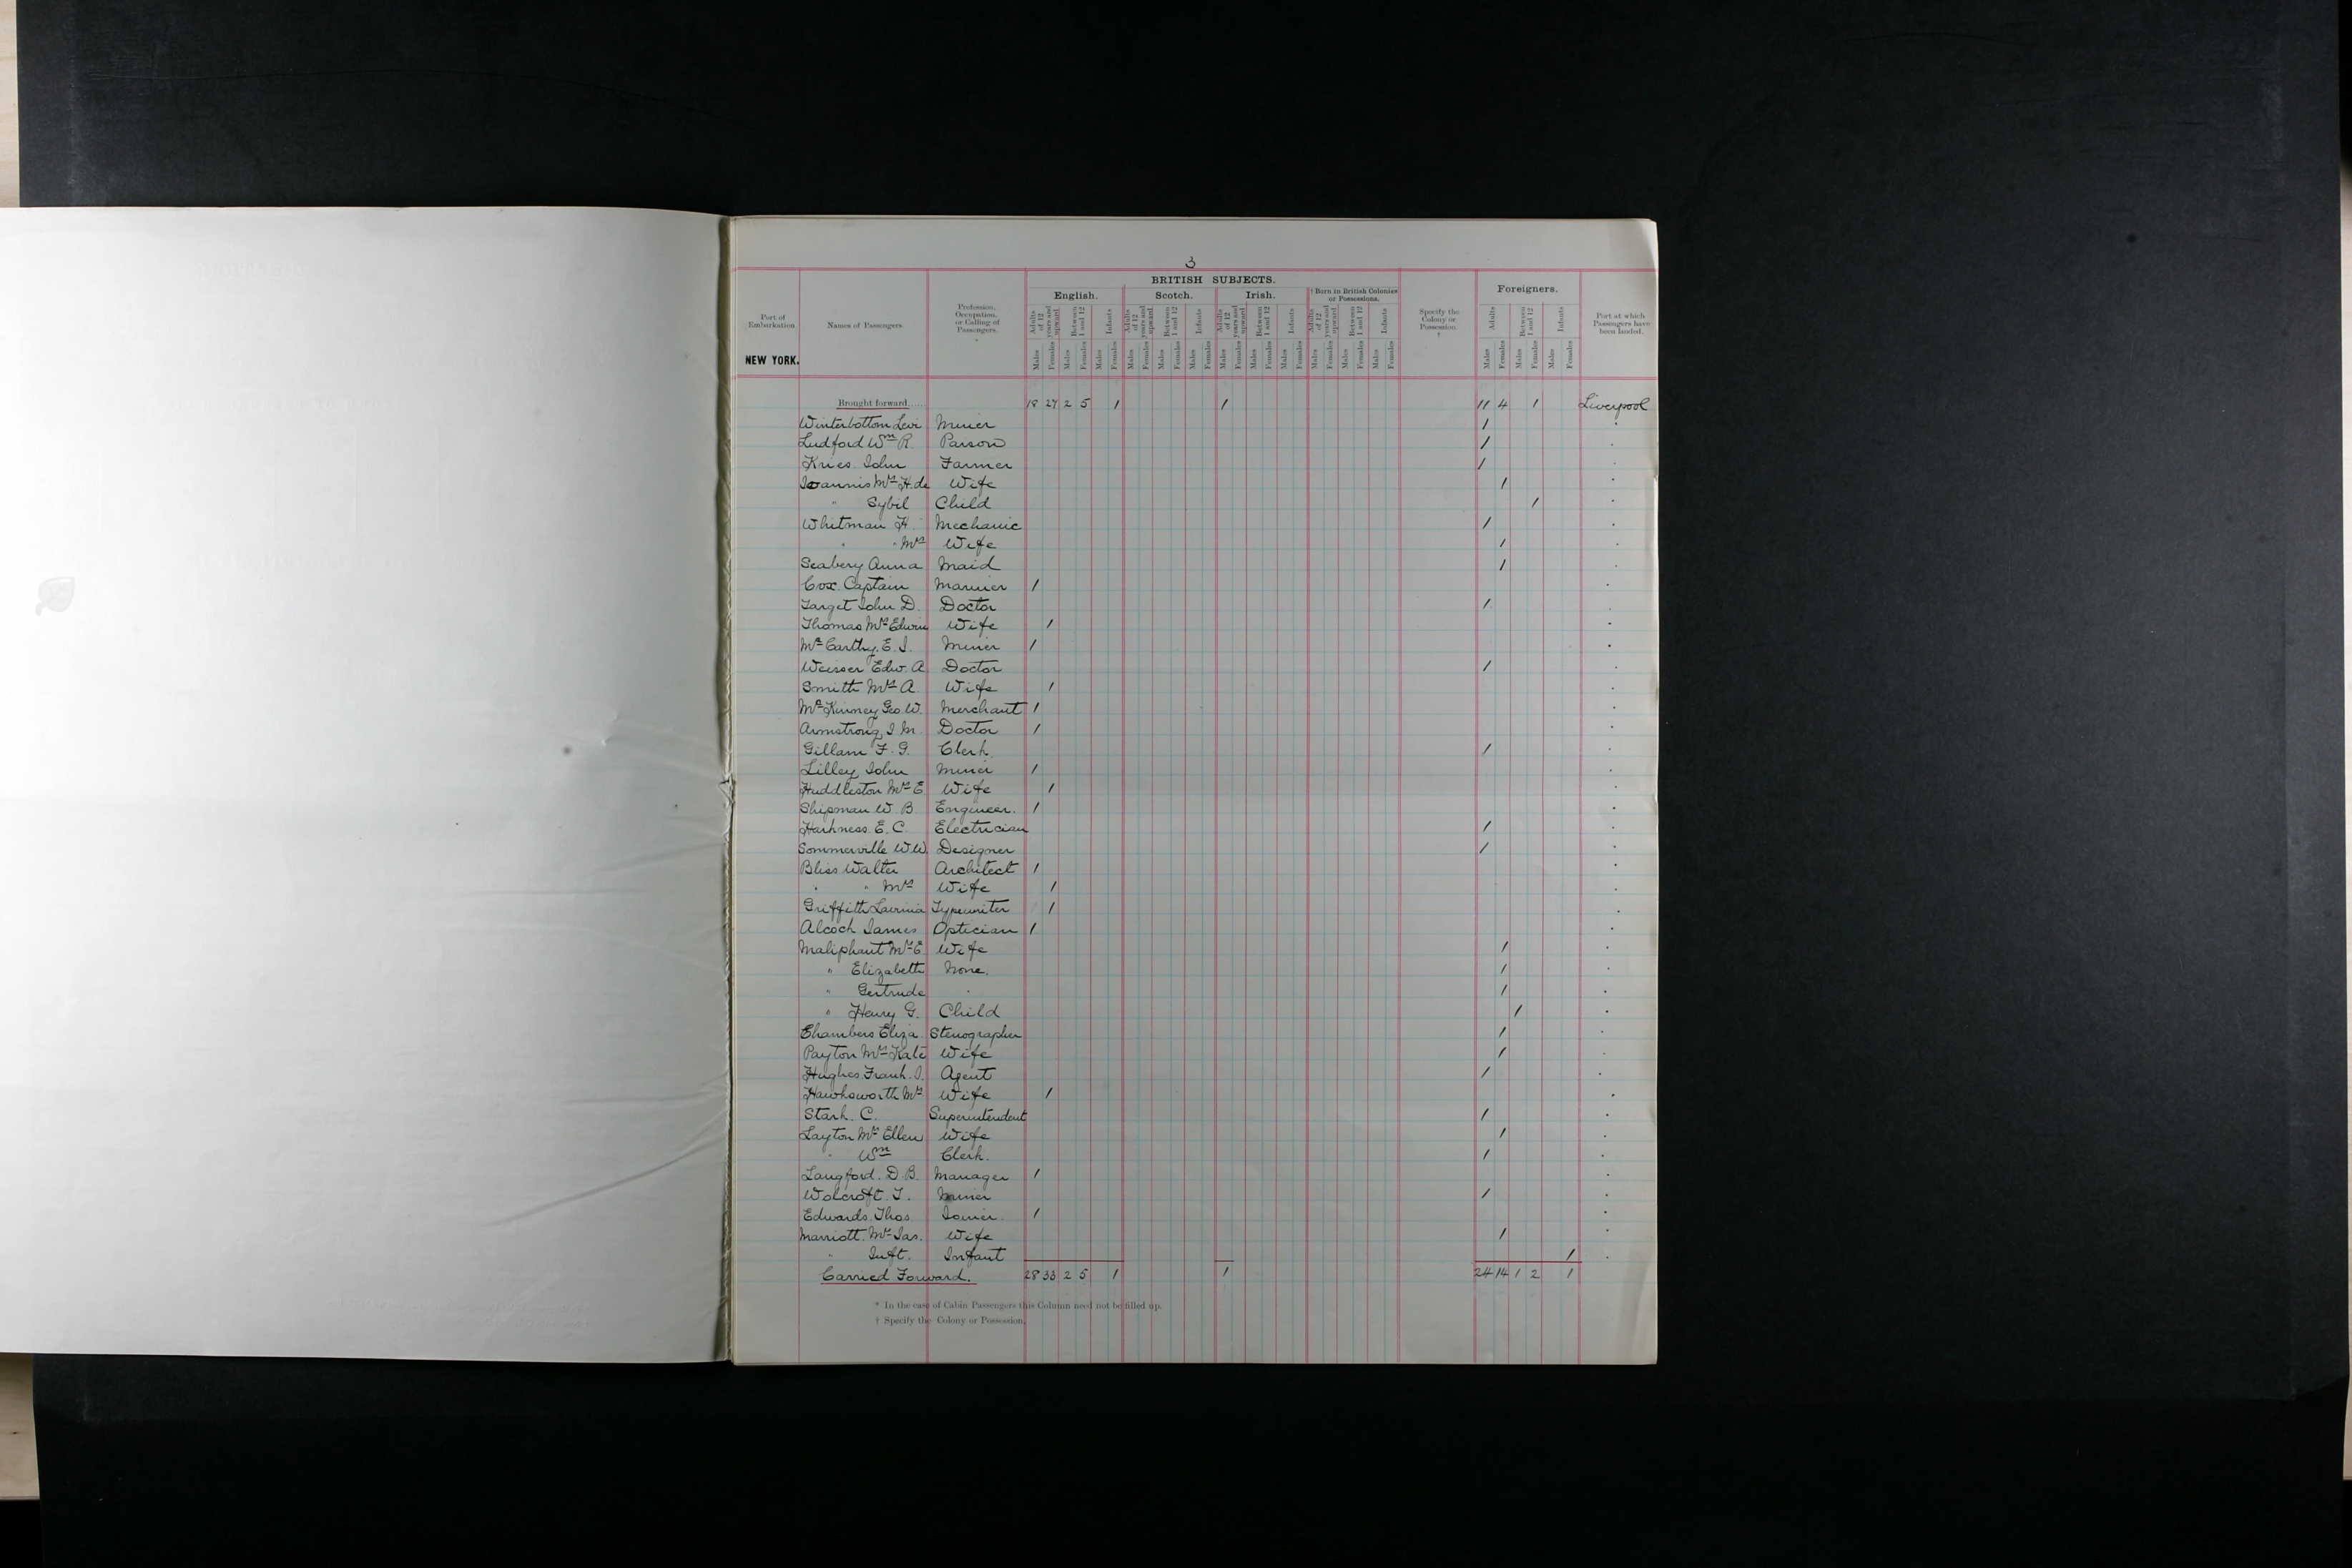 3
BRITISH SUBJECTS.
Port of Embarkation
Names of Passengers.
Profession, Occupation, or Calling of Passengers.
*
English.
Scotch.
Irish.
† Born in British Colonies or Possessions.
Specify the Colony or Possession.
†
Foreigners.
Port at which Passengers have been landed.
Adults of 12 years and upward Between 1 and 12 Infants
Adults of 12 years and upward Between 1 and 12 Infants
Adults of 12 years and upward Between 1 and 12 Infants
Adults of 12 years and upward Between 1 and 12 Infants
Adults Between 1 and 12 Infants
Males Females Males Females Males Females
Males Females Males Females Males Females
Males Females Males Females Males Females
Males Females Males Females Males Females
Males Females Males Females Males Females
NEW YORK.
Brought forward..... 18 27 2 5 1 1 11 4 1 Liverpool
Winterbottom Levi Miner 1
Ludford Wm R. Parson 1
Kries. John Farmer 1
Ioannis Mrs H. de Wife 1
" Sybil Child 1
Whitman H. Mechanic 1
" " Mrs Wife 1
Seabery Anna Maid 1
Cox. Captain Mariner 1
Target John D. Doctor 1
Thomas Mrs Edwin Wife 1
Mc Carthy. E. J. Miner 1
Weisser Edw. A. Doctor 1
Smith Mrs A. Wife 1
Mc Kinney Geo. W. Merchant 1
Armstrong J. M. Doctor 1
Gillam F. G. Clerk 1
Lilley John Miner 1
Huddleston Mrs E Wife 1
Shipman W. B. Engineer. 1
Harkness. E. C. Electrician 1
Sommerville W.W. Designer 1
Bliss Walter Architect 1
" " Mrs Wife 1
Griffith Lavinia Typewriter 1
Alcock James Optician 1
Maliphant Mrs E Wife 1
" Elizabeth None. 1
" Gertrude " 1
" Henry G. Child 1
Chambers Eliza. Stenographer 1
Payton Mrs Kate Wife 1
Hughes Frank. J. Agent 1
Hawksworth Mrs Wife 1
Stark. C. Superintendent 1
Layton Mrs Ellen Wife 1
" Wm Clerk. 1
Langford. D. B. Manager 1
Wolcroft. T. Miner 1
Edwards. Thos. Joiner. 1
Marriott. Mrs Jas. Wife 1
" Inft. Infant 1
Carried Forward. 28 33 2 5 1 1 24 14 1 2 1
* In the case of Cabin Passengers this Column need not be filled up.
† Specify the Colony or Possession.